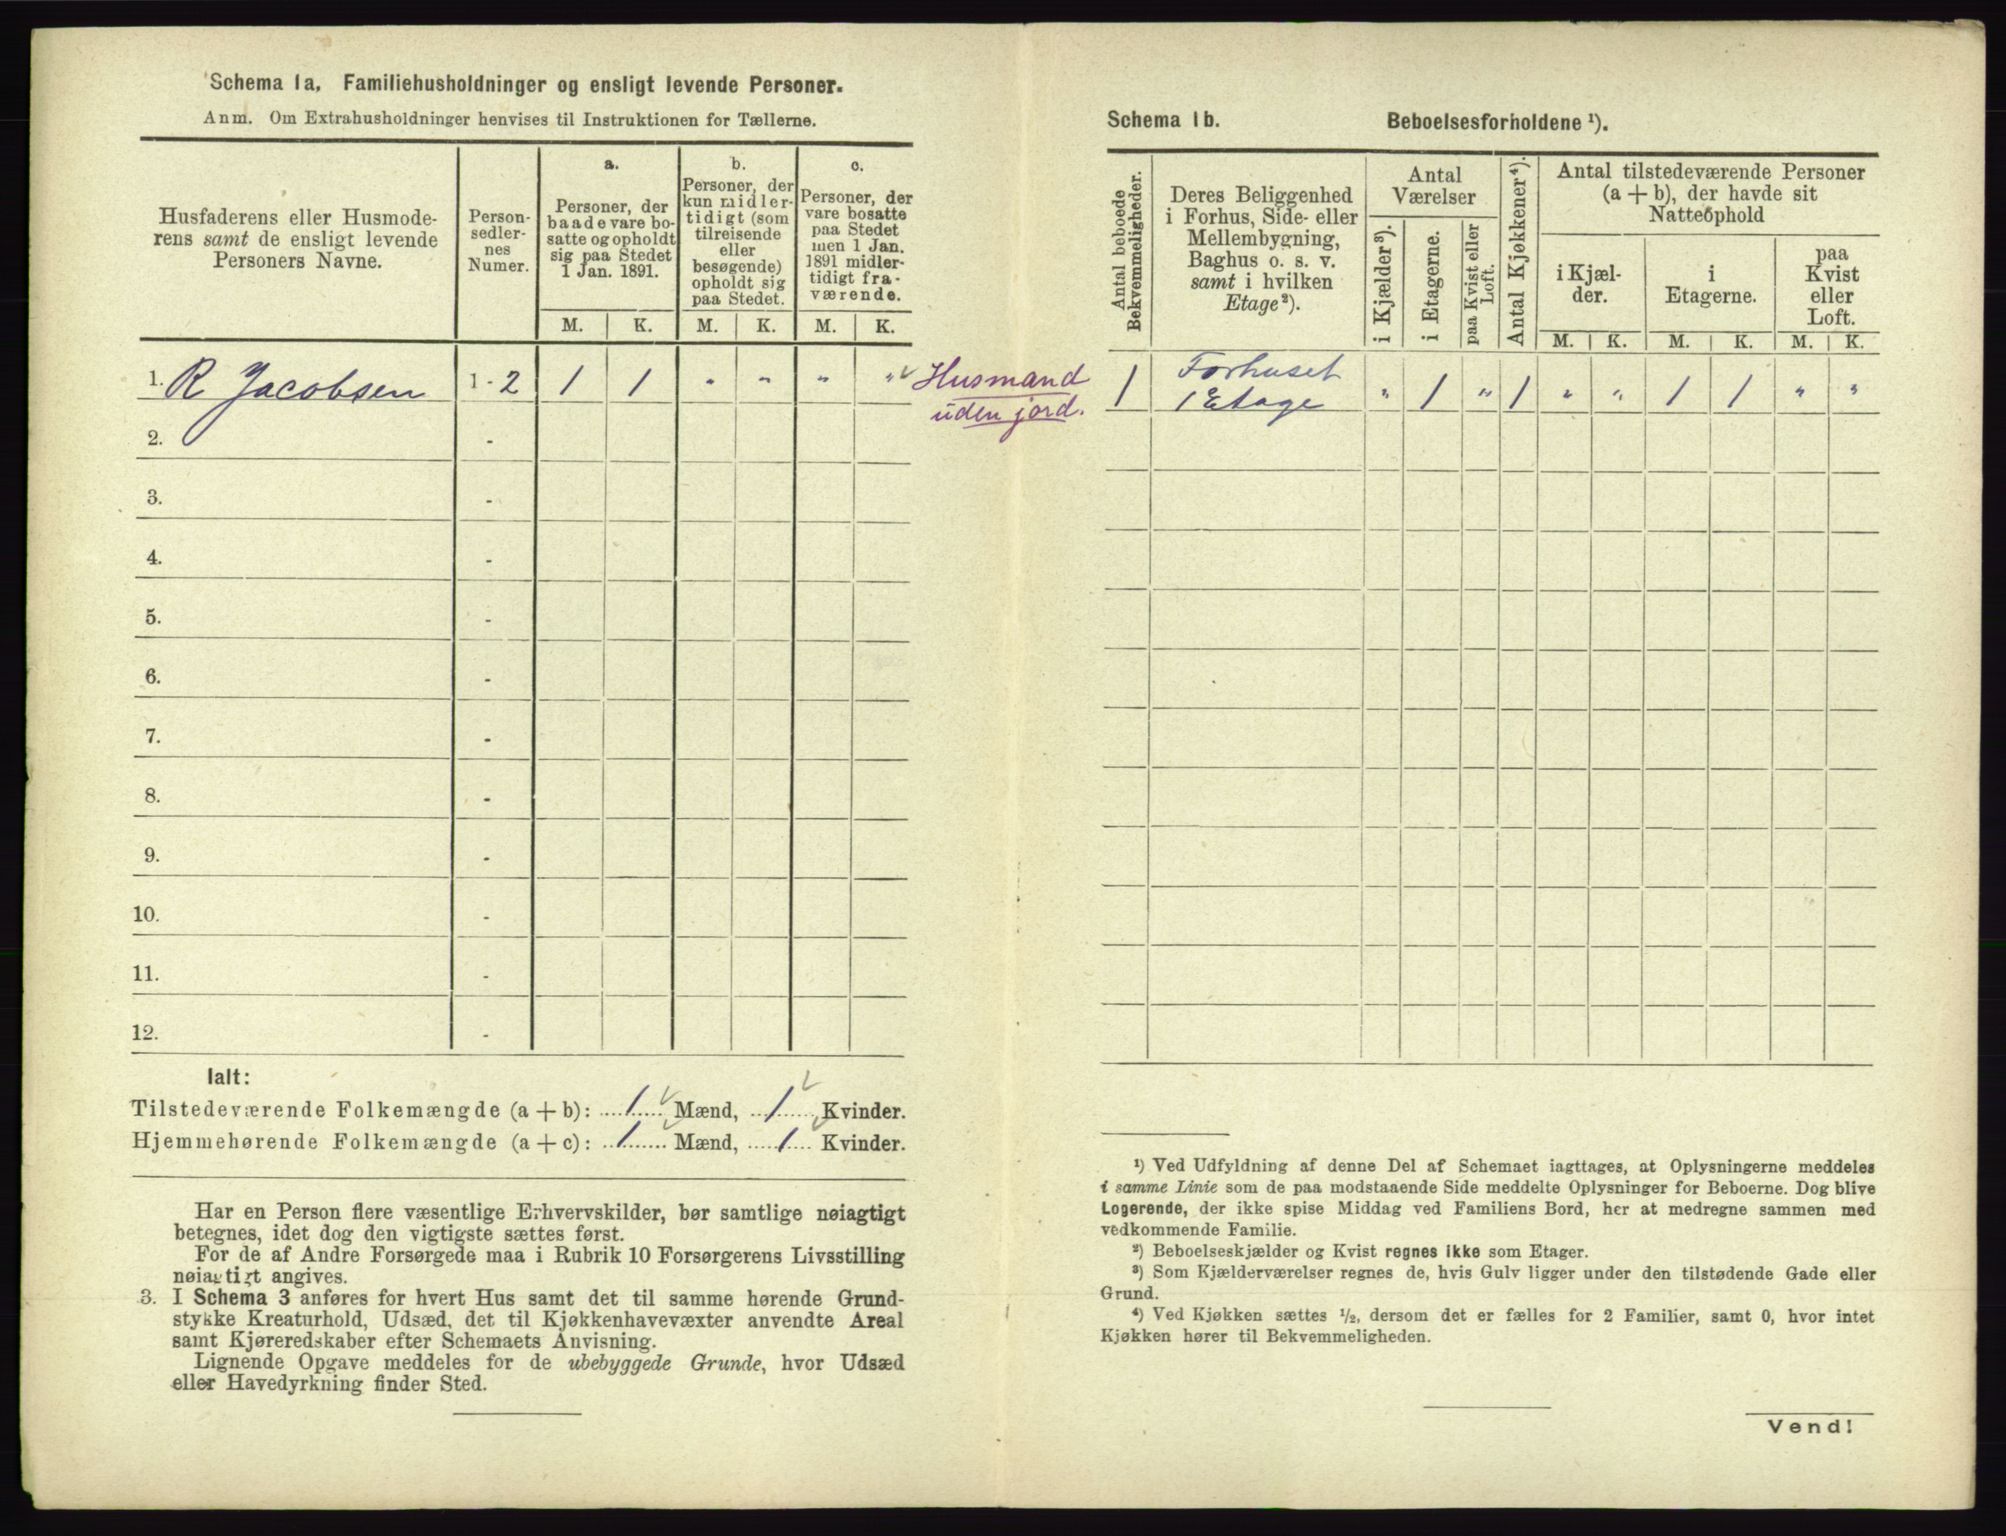 Schema 1a. Familiehusholdninger og ensligt levende Personer.
Anm. Om Extrahusholdninger henvises til Instruktionen for Tællerne.
Husfaderens eller Husmode-
rens samt de ensligt levende
Personers Navne.
Person-
sedler-
nes
Numer.
a.
Personer, der
baade vare bo-
satte og opholdt
sig paa Stedet
1 Jan. 1891.
b.
Personer, der
kun midler-
tidigt (som
tilreisende
eller
besøgende)
opholdt sig
paa Stedet.
c.
Personer, der
vare bosatte
paa Stedet
men 1 Jan.
1891 midler-
tidigt fra-
værende.
M. K. M. K. M. K.
1. R Jacobsen 1 - 2 1 1 " " " "
Husmand
uden jord.
2. -
3. -
4. -
5. -
6. -
7. -
8. -
9. -
10. -
11. -
12. -
Ialt:
Tilstedeværende Folkemængde (a + b): 1 Mænd, 1 Kvinder.
Hjemmehørende Folkemængde (a + c): 1 Mænd, 1 Kvinder.
Har en Person flere væsentlige Erhvervskilder, bør samtlige nøiagtigt
betegnes, idet dog den vigtigste sættes først.
For de af Andre Forsørgede maa i Rubrik 10 Forsørgerens Livsstilling
nøiagtigt angives.
3. I Schema 3 anføres for hvert Hus samt det til samme hørende Grund-
stykke Kreaturhold, Udsæd, det til Kjøkkenhavevæxter anvendte Areal
samt Kjøreredskaber efter Schemaets Anvisning.
Lignende Opgave meddeles for de ubebyggede Grunde, hvor Udsæd
eller Havedyrkning finder Sted.
Schema 1b. Beboelsesforholdene ¹).
Antal beboede
Bekvemmeligheder.
Deres Beliggenhed
i Forhus, Side- eller
Mellembygning,
Baghus o. s. v.
samt i hvilken
Etage²).
Antal
Værelser
i Kjælder³).
i Etagerne.
paa Kvist eller
Loft.
Antal Kjøkkener⁴).
Antal tilstedeværende Personer
(a + b), der havde sit
Natteophold
i Kjæl-
der.
i
Etagerne.
paa
Kvist
eller
Loft.
M. K. M. K. M. K.
1 Forhuset
1 Etage " 1 " 1 " " 1 1 " "
¹) Ved Udfyldning af denne Del af Schemaet iagttages, at Oplysningerne meddeles
i samme Linie som de paa modstaaende Side meddelte Oplysninger for Beboerne. Dog blive
Logerende, der ikke spise Middag ved Familiens Bord, her at medregne sammen med
vedkommende Familie.
²) Beboelseskjælder og Kvist regnes ikke som Etager.
³) Som Kjælderværelser regnes de, hvis Gulv ligger under den tilstødende Gade eller
Grund.
⁴) Ved Kjøkken sættes ½, dersom det er fælles for 2 Familier, samt 0, hvor intet
Kjøkken hører til Bekvemmeligheden.
Vend!